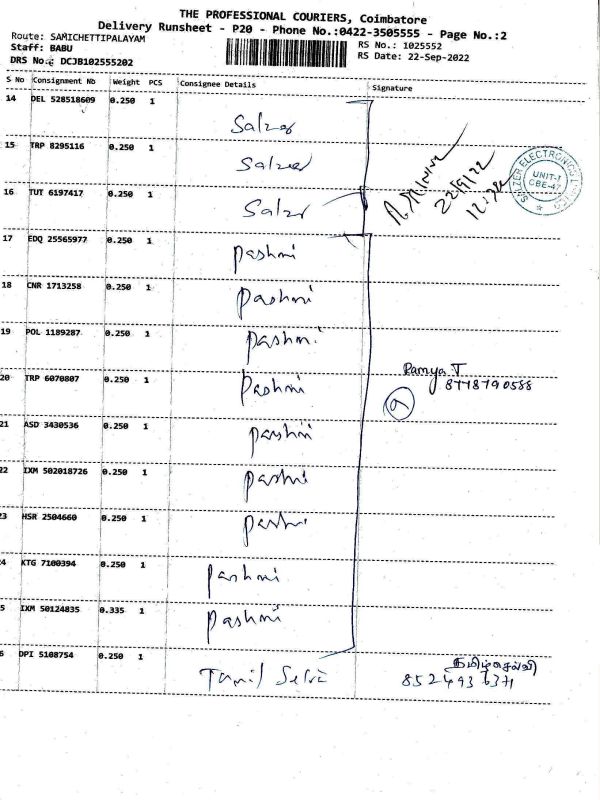 THE PROFESSIONAL COURIERS, Coimbatore
Delivery Runsheet - P20 - Phone No.:0422-3505555 - Page No.:2
Route: SAMICHETTIPALAYAM
Staff: BABU
DRS No.: DCJB102555202
RS No.: 1025552
RS Date: 22-Sep-2022
S No Consignment No Weight PCS Consignee Details Signature
14 DEL 528518609 0.250 1 Salzer
15 TRP 8295116 0.250 1 Salzer
16 TUT 6197417 0.250 1 Salzer
22/9/22
SALZER ELECTRONICS LIMITED
UNIT-1
CBE-47
17 EDQ 25565977 0.250 1 Pashmi
18 CNR 1713258 0.250 1 Pashmi
19 POL 1189287 0.250 1 Pashmi
20 TRP 6070807 0.250 1 Pashmi
Ramya T
8778790588
9
21 ASD 3430536 0.250 1 Pashmi
22 IXM 502018726 0.250 1 Pashmi
3 HSR 2504660 0.250 1 Pashmi
4 KTG 7100394 0.250 1 Pashmi
5 IXM 50124835 0.335 1 Pashmi
6 DPI 5108754 0.250 1 Tamil Selvi
தமிழ்செல்வி
8524936371